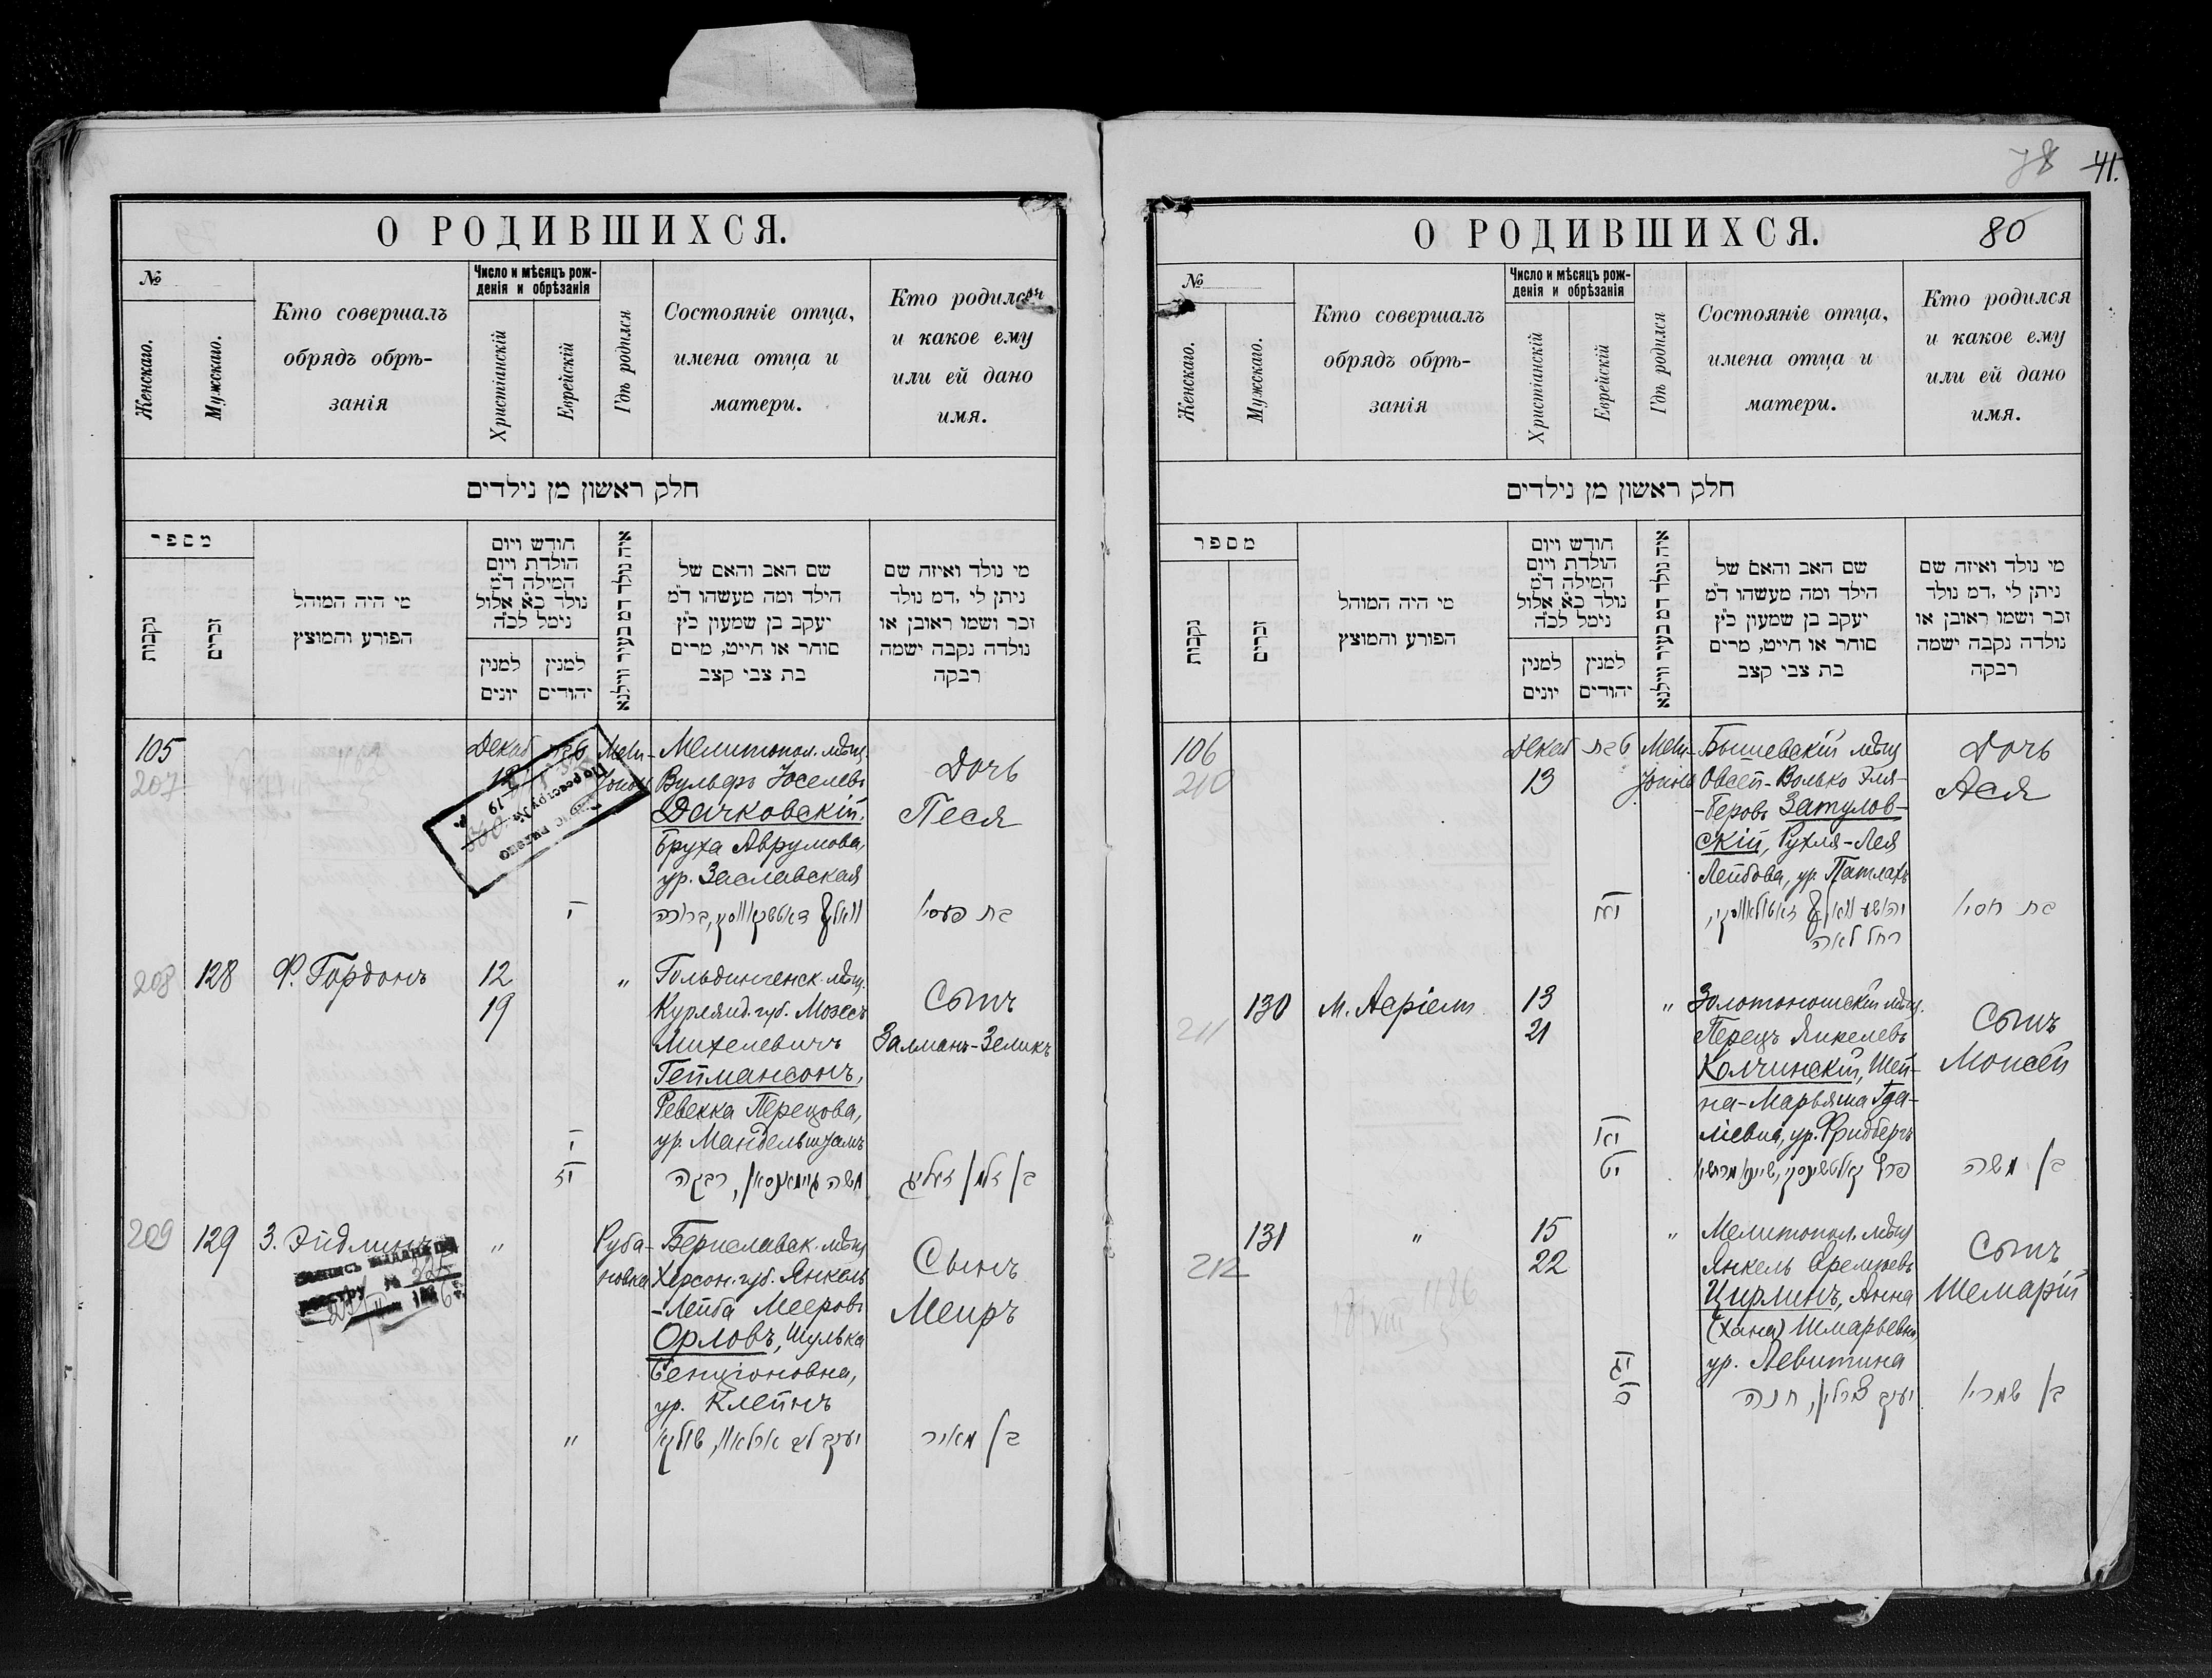 О РОДИВШИХСЯ.
№
Женскаго.
Мужскаго.
Кто совершалъ
обрядъ обрѣ-
занія
Число и мѣсяцъ рож-
денія и обрѣзанія
Христіанскій
Еврейскій
Гдѣ родился
Состояніе отца,
имена отца и
матери.
Кто родился
и какое ему
или ей дано
имя.
חלק ראשון מן נילדים
מספר
נקבות
זכרים
מי היה המוהל
הפורע והמוצץ
חודש ויום
הולדת ויום
המילה ד״מ
נולד כ״א אלול
נימל לכ״ה
למנין
יונים
למנין
יהודים
איה נולד דמ בעיר ווילנא
שם האב והאם של
הילד ומה מעשהו ד״מ
יעקב בן שמעון כ״ץ
סוחר או חייט, מרים
בת צבי קצב
מי נולד ואיזה שם
ניתן לי ,דמ נולד
זכר ושמו ראובן או
נולדה נקבה ישמה
רבקה
105
207
Декаб
12
טבת
Мели-
тополь
Мелитопол. мѣщ.
Вульфъ Іоселевъ
Дачковскій,
Бруха Аврумова,
ур. Заславская
Дочь
Песя
י
וואלף דאטשקאווסקי, ברוכה
בת פעסיא
208
128
Ф. Гордонъ
12
19
"
Гольдингенск. мѣщ.
Курлянд. губ. Мозесъ
Михелевичъ
Геймансонъ,
Ревекка Перецова,
ур. Мандельштамъ
Сынъ
Залманъ-Зеликъ
י
יז
משה היימאנסאן, רבקה
בן זלמן זעליג
209
129
З. Эйдлинъ
"
Руба-
новка
Бериславск. мѣщ
Херсон. губ. Янкель
-Лейба Мееровъ
Орловъ, Шулька
Бенціоновна,
ур. Клейнъ
Сынъ
Меиръ
"
יעקב ליב ארלאוו, שולקא
בן מאיר
78
41.
О РОДИВШИХСЯ.
80
№
Женскаго.
Мужскаго.
Кто совершалъ
обрядъ обрѣ-
занія
Число и мѣсяцъ рож-
денія и обрѣзанія
Христіанскій
Еврейскій
Гдѣ родился
Состояніе отца,
имена отца и
матери.
Кто родился
и какое ему
или ей дано
имя.
חלק ראשון מן נילדים
מספר
נקבות
זכרים
מי היה המוהל
הפורע והמוצץ
חודש ויום
הולדת ויום
המילה ד״מ
נולד כ״א אלול
נימל לכ״ה
למנין
יונים
למנין
יהודים
איה נולד דמ בעיר ווילנא
שם האב והאם של
הילד ומה מעשהו ד״מ
יעקב בן שמעון כ״ץ
סוחר או חייט, מרים
בת צבי קצב
מי נולד ואיזה שם
ניתן לי ,דמ נולד
זכר ושמו ראובן או
נולדה נקבה ישמה
רבקה
106
210
Декаб
13
טבת
Мели-
тополь
Бышевскій мѣщ
Овсей-Волько Эля-
-беровъ Затулов-
скій, Рухля-Лея
Лейбова, ур. Патлахъ
Дочь
Ася
יהושע וואלף זאטולאווסקי,
רחל לאה
בת חסיא
211
130
М. Асріелт
13
21
"
Золотоношскій мѣщ.
Перецъ Янкелевъ
Колчинскій, Шей-
на-Марьяша Гда-
ліевна, ур. Фридбергъ
Сынъ
Моисей
יא
יט
פרץ קאלטשינסקי, שיינא מרישא
בן משה
212
131
"
15
22
"
Мелитопол. мѣщ
Янкель Сремеевъ
Цирлинъ, Анна
(Хана) Шмарьевна
ур. Левитина
Сынъ
Шемарій
יג
כ
יעקב צירלין, חנה
בן שמריא